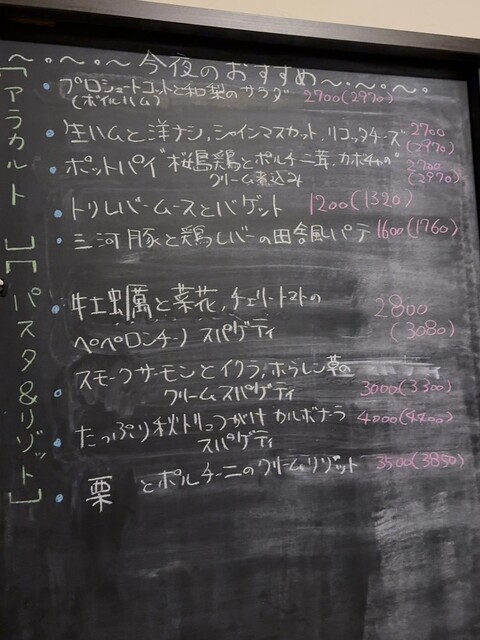 ～・～・～今夜のおすすめ～・～・～・
[アラカルト]
・プロシュートコットと和梨のサラダ 2700(2970)
(ボイルハム)
・生ハムと洋ナシ,シャインマスカット,リコッタチーズ 2700
(2970)
・ポットパイ"桜島鶏とポルチーニ茸,カボチャの" 2700
クリーム煮込み (2970)
・トリレバームースとバゲット 1200(1320)
・三河豚と鶏レバーの田舎風パテ 1600(1760)
[パスタ&リゾット]
・牡蠣と菜花,チェリートマトの 2800
ペペロンチーノ スパゲティ (3080)
スモークサーモンとイクラ,ホウレン草の
・クリームスパゲティ 3000(3300)
たっぷり秋トリュフがけ カルボナーラ 4000(4400)
・スパゲティ
・栗 とポルチーニのクリームリゾット 3500(3850)